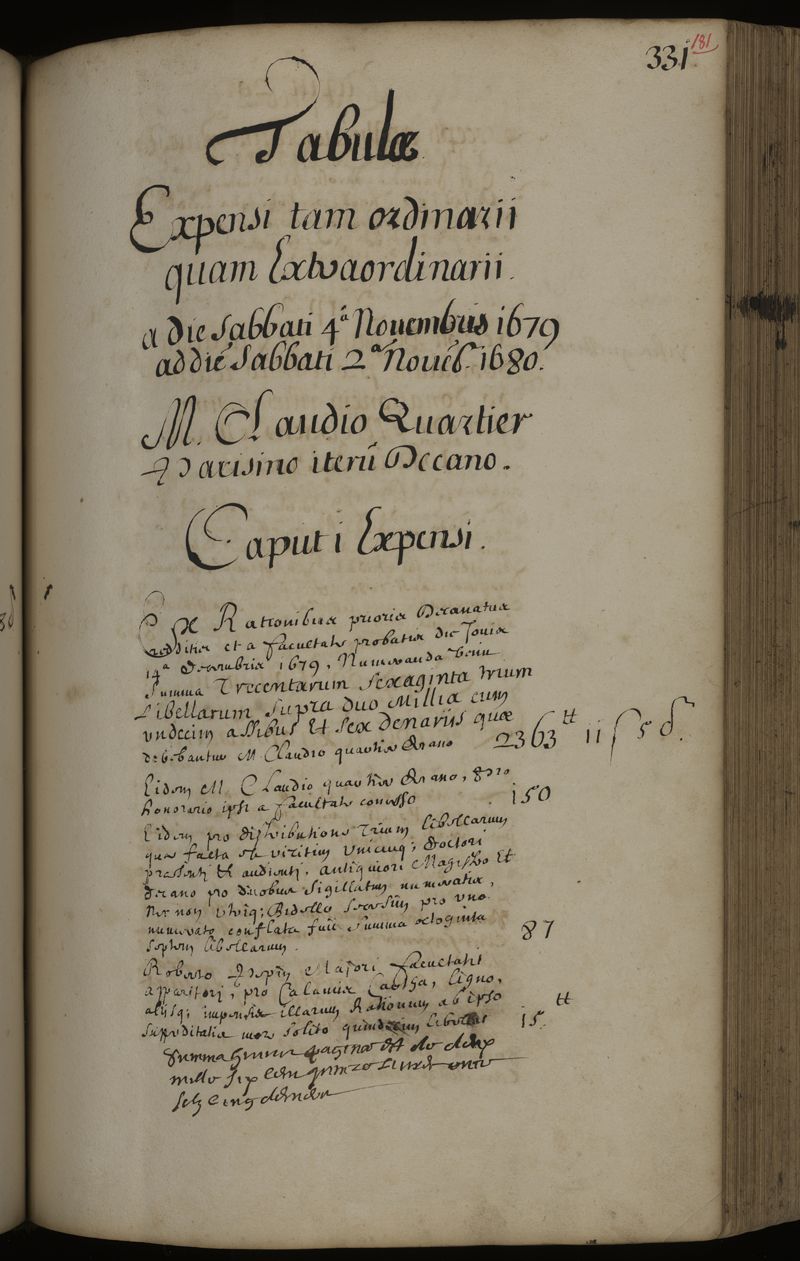 331 181
Tabulæ
Expensi tam ordinarii
quam Extraordinarii.
a die Sabbati 4ª Nouembris 1679
ad diē Sabbati 2ª Nouēb. 1680.
M. Claudio Quartier
Parisino iterū Decano.
Caput i Expensi.
Ex Rationibus prioris Decanatus
redditis et a Facultate probatis die Jouis
14ª Decembris 1679, Numeranda venit
Summa Trecentarum Sexaginta trium
Libellarum supra duo Millia cum
vndecim assibus et sex denariis quæ
debebantur M. Claudio quartier Decano 2363 ₶ ii ſ 5 d.
Eidem M. Claudio quartier Decano, pro
honorario ipsi a Facultate concesso . 150
Eidem pro distributione Trium libellarum
quæ facta est viritim vnicuiq; Doctori
præsenti et audienti, antiquiori Magistro et
Decano pro duobus Sigillatim numeratis,
Nec non vtriq; Bidello seorsim pro vno
numerato conflata fuit Summa octoginta
septem libellarum . 87
Roberto Majori Facultatis
apparitori, pro Calamis Charta, ligno,
aliisq; impensis illarum Rationum ab ipso
suppeditatis more solito quindecim libellæ 15. ₶
Summa paginæ est de deux
mille six Cen quinze Liures onze
solz Cinq deniers